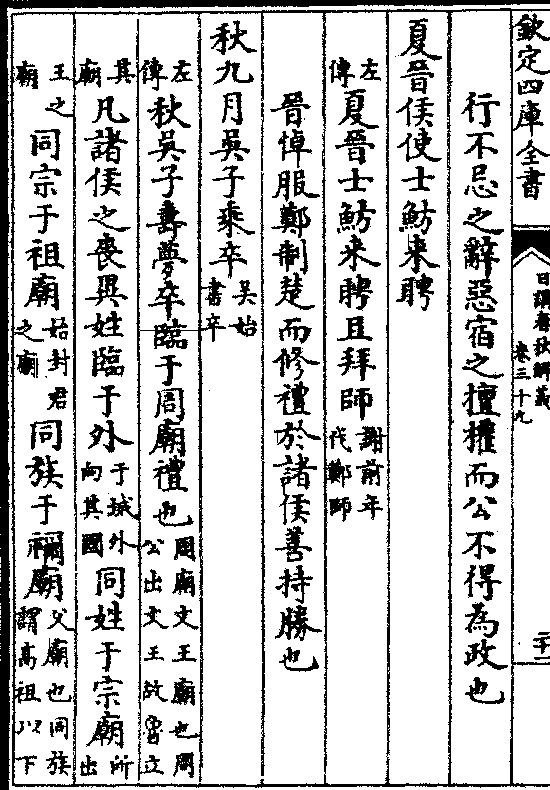 欽定四庫全書
日講春秋解義
卷三十九
二十一
行不忌之辭惡宿之擅權而公不得為政也
夏晉侯使士魴来聘
左傳夏晉士魴来聘且拜師謝前年伐鄭師
晉悼服鄭制楚而修禮於諸侯善持勝也
秋九月吳子乘卒吳始書卒
左傳秋吳子壽夢卒臨于周廟禮也周廟文王廟也周公出文王故魯立
其廟凡諸侯之喪異姓臨于外于城外向其國同姓于宗廟所出
王之廟同宗于祖廟始封君之廟同族于禰廟父廟也同族謂高祖以下